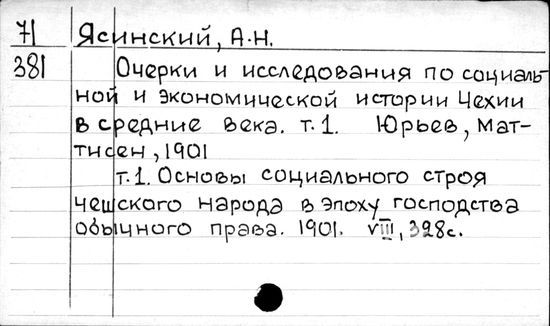 71 Ясинский, А.Н.
381 Очерки и исследования по социаль-
ной и экономической истории Чехии
в средние века. т.1. Юрьев, Мат-
тисен, 1901
т.1. Основы социального строя
чешского народа в эпоху господства
обычного права. 1901. VIII, 328с.